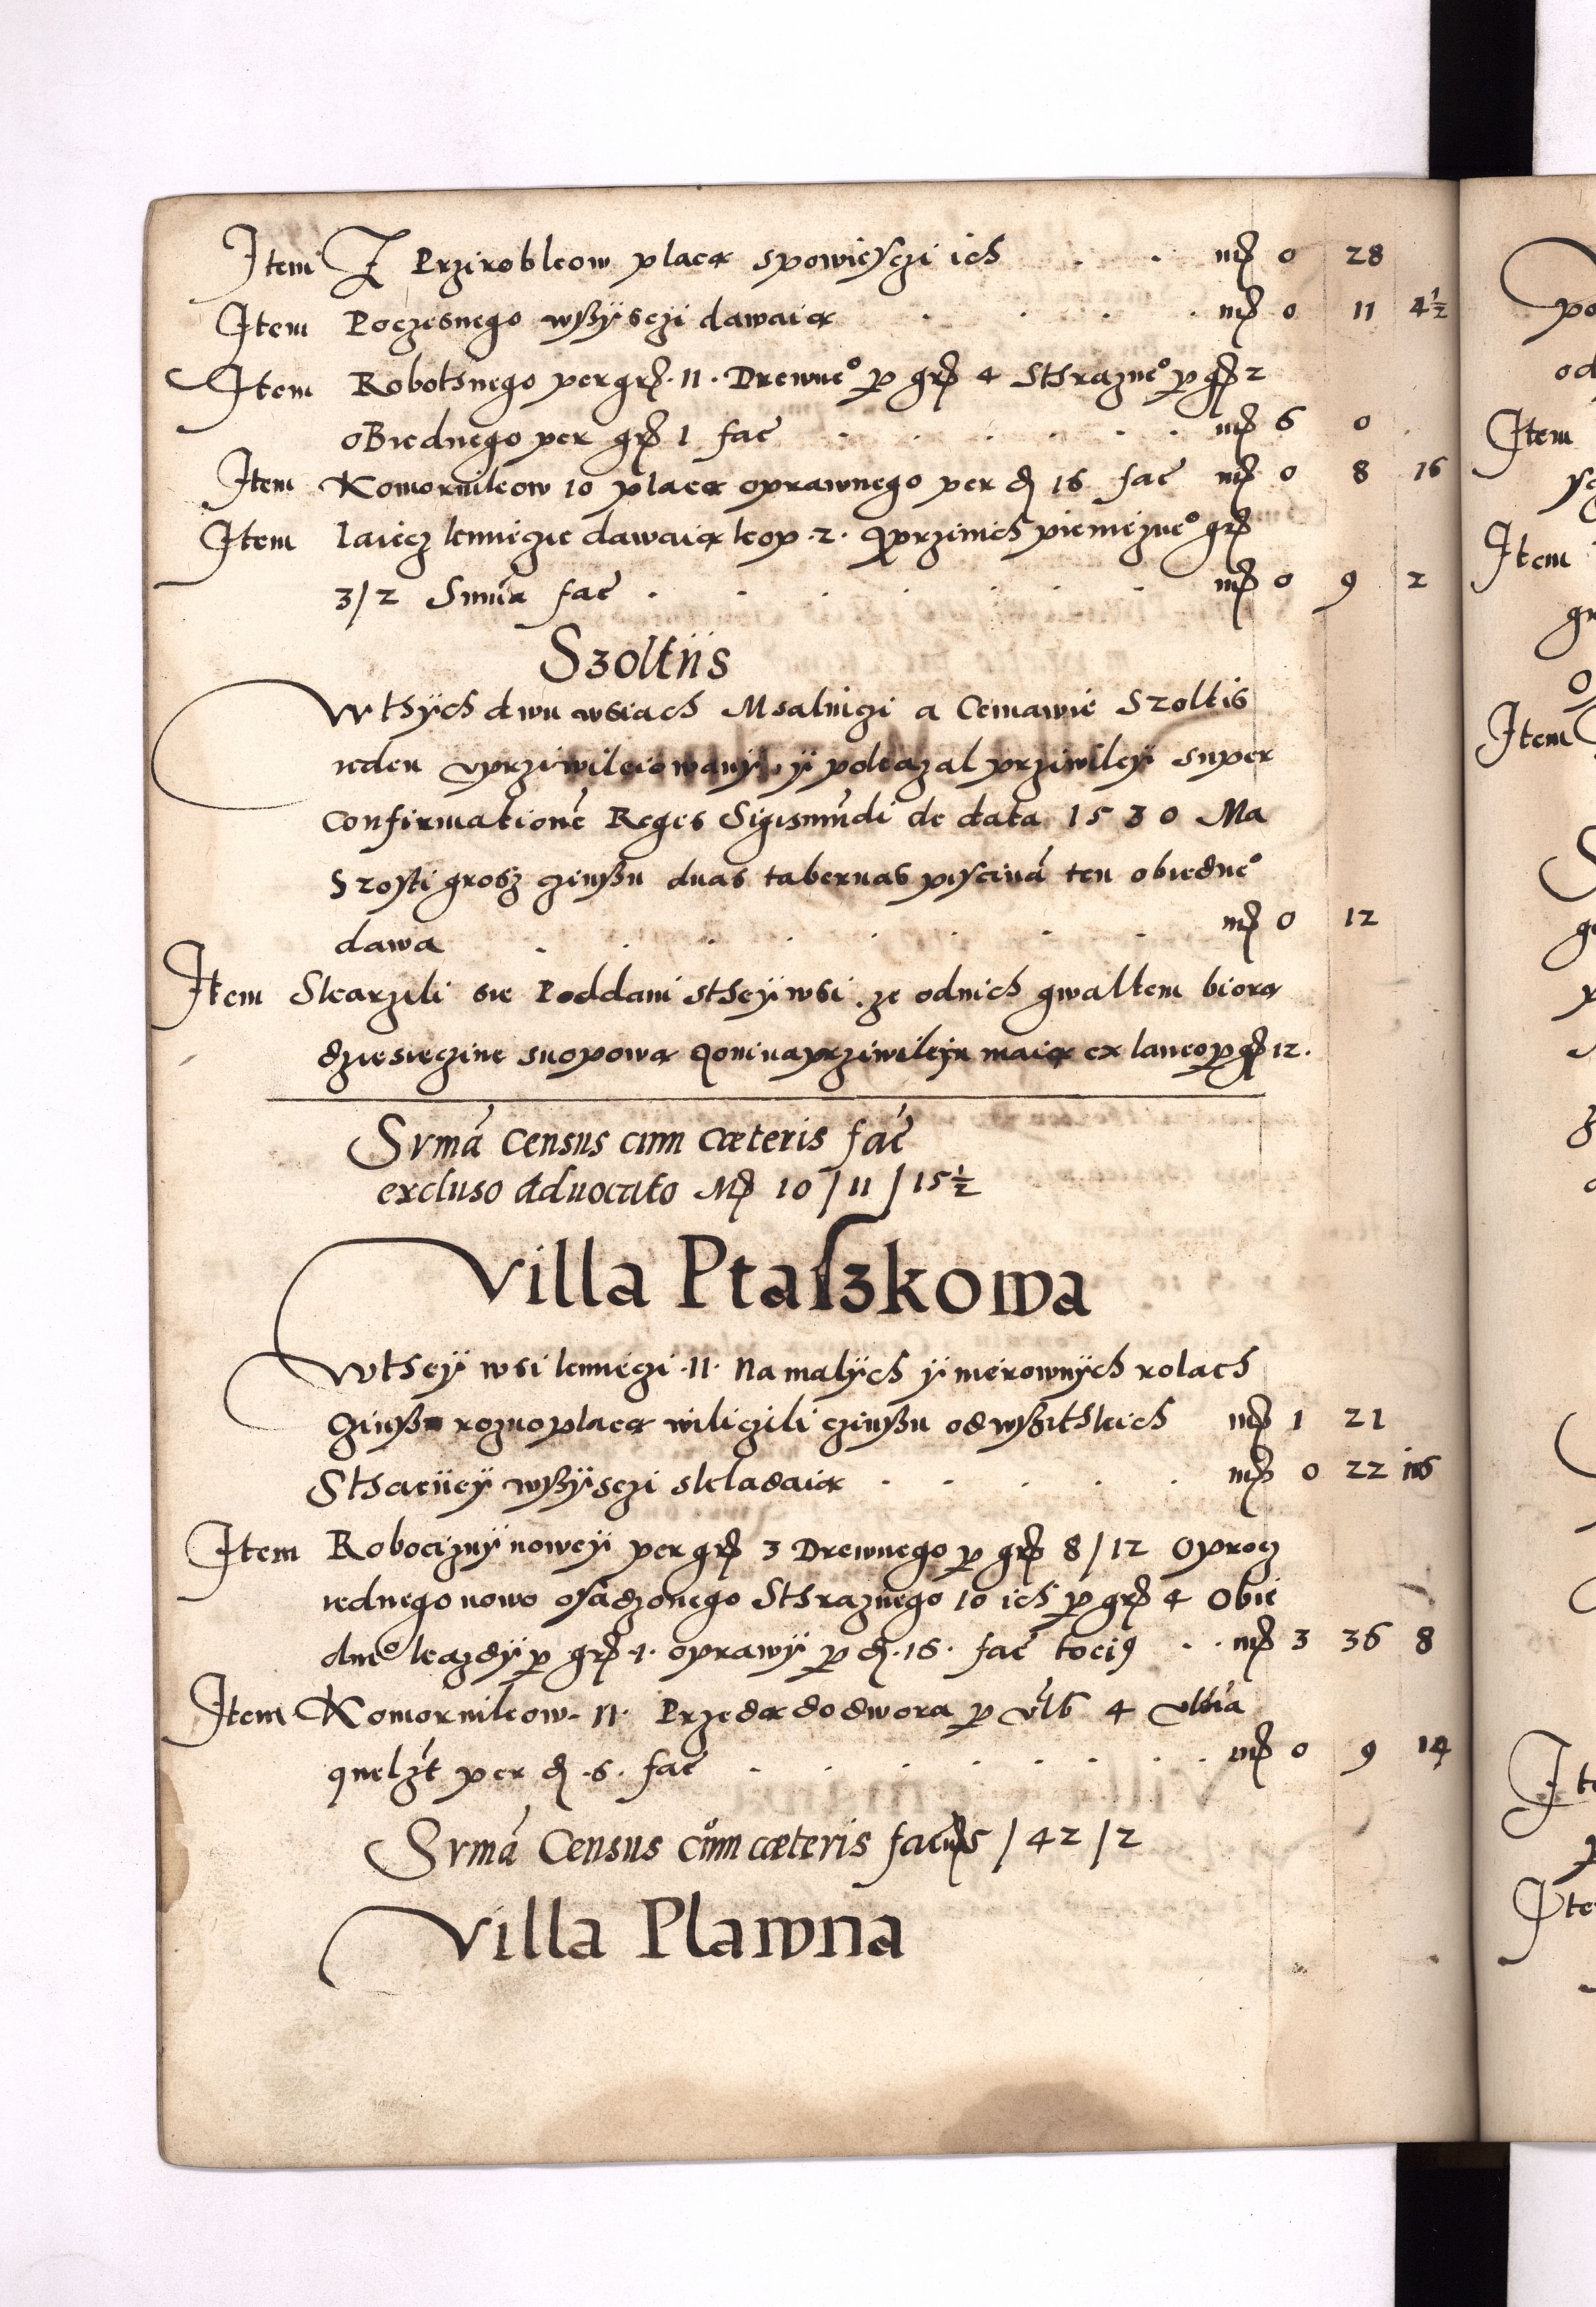 Item Z Przirobkow placą spowieysczi ich . . mrͤ 0 28
Item Poczesnego wßÿsczi dawaią . . . . mrͤ 0 11 4½
Item Robothnego per grͤ. 11. Drewne° p grͤ 4 Sthrazne° p grͤ 2
oBiednego per grͤ 1 fać . . . . . . mrͤ 6 0
Item Komornikow 10 placą oprawnego per ₰ 16 fać mrͤ 0 8 16
Item Iaiecz kmieczie dawaią kop. 2. przinich pieniezne° grͤ
3/2 Sum̃a fać . . . . . . . mrͤ 0 9 2
Szoltiis
Wthÿch dwu wsiach Msalniczi a Ceniawie Szoltis
ieden vprziwileiowanÿ ÿ pokazal prziwileÿ super
Confirmationē Reges Sigismūdi de data 1530 Ma
Szosti grosz czinßu duas tabernas pisciná ten obiedne°
dawa . . . . . . . . mrͤ 0 12
Item Skarzili sie Poddani stheÿ wsi ze odnich gwaltem biorą
dziesieczine snopową a oni na prziwileiu maią ex laneo p grͤ 12.
Svmá Census cum cæteris fać
excluso aduocato Mrͤ 10/11/15½
Villa Ptaſzkowa
Wthey wsi kmieczi .11. Na malÿch ÿ nierownÿch rolach
Czinßu rozno placą wiliczili czinßu od wßithkich mrͤ 1 21
Sthacÿeÿ wßÿsczi skladaią . . . . . mrͤ 0 22
Item Robociznÿ noweÿ per grͤ 3 Drewnego p grͤ 8/12 Oprocz
iednego nowo osadzonego Sthraznego 10 ich p grͤ 4 Obie
dne° kazdÿ p grͤ 1. oprawÿ p ₰. 16. fać . . mrͤ 3 36 8
Item Komornikow. 11. Przedą do dwora p vlb 4
per ₰. 6. fać . . . . . . . . mrͤ 0 9 14
Svmá Census cům cæteris fać mrͤ 5/42/2
Villa Plawna